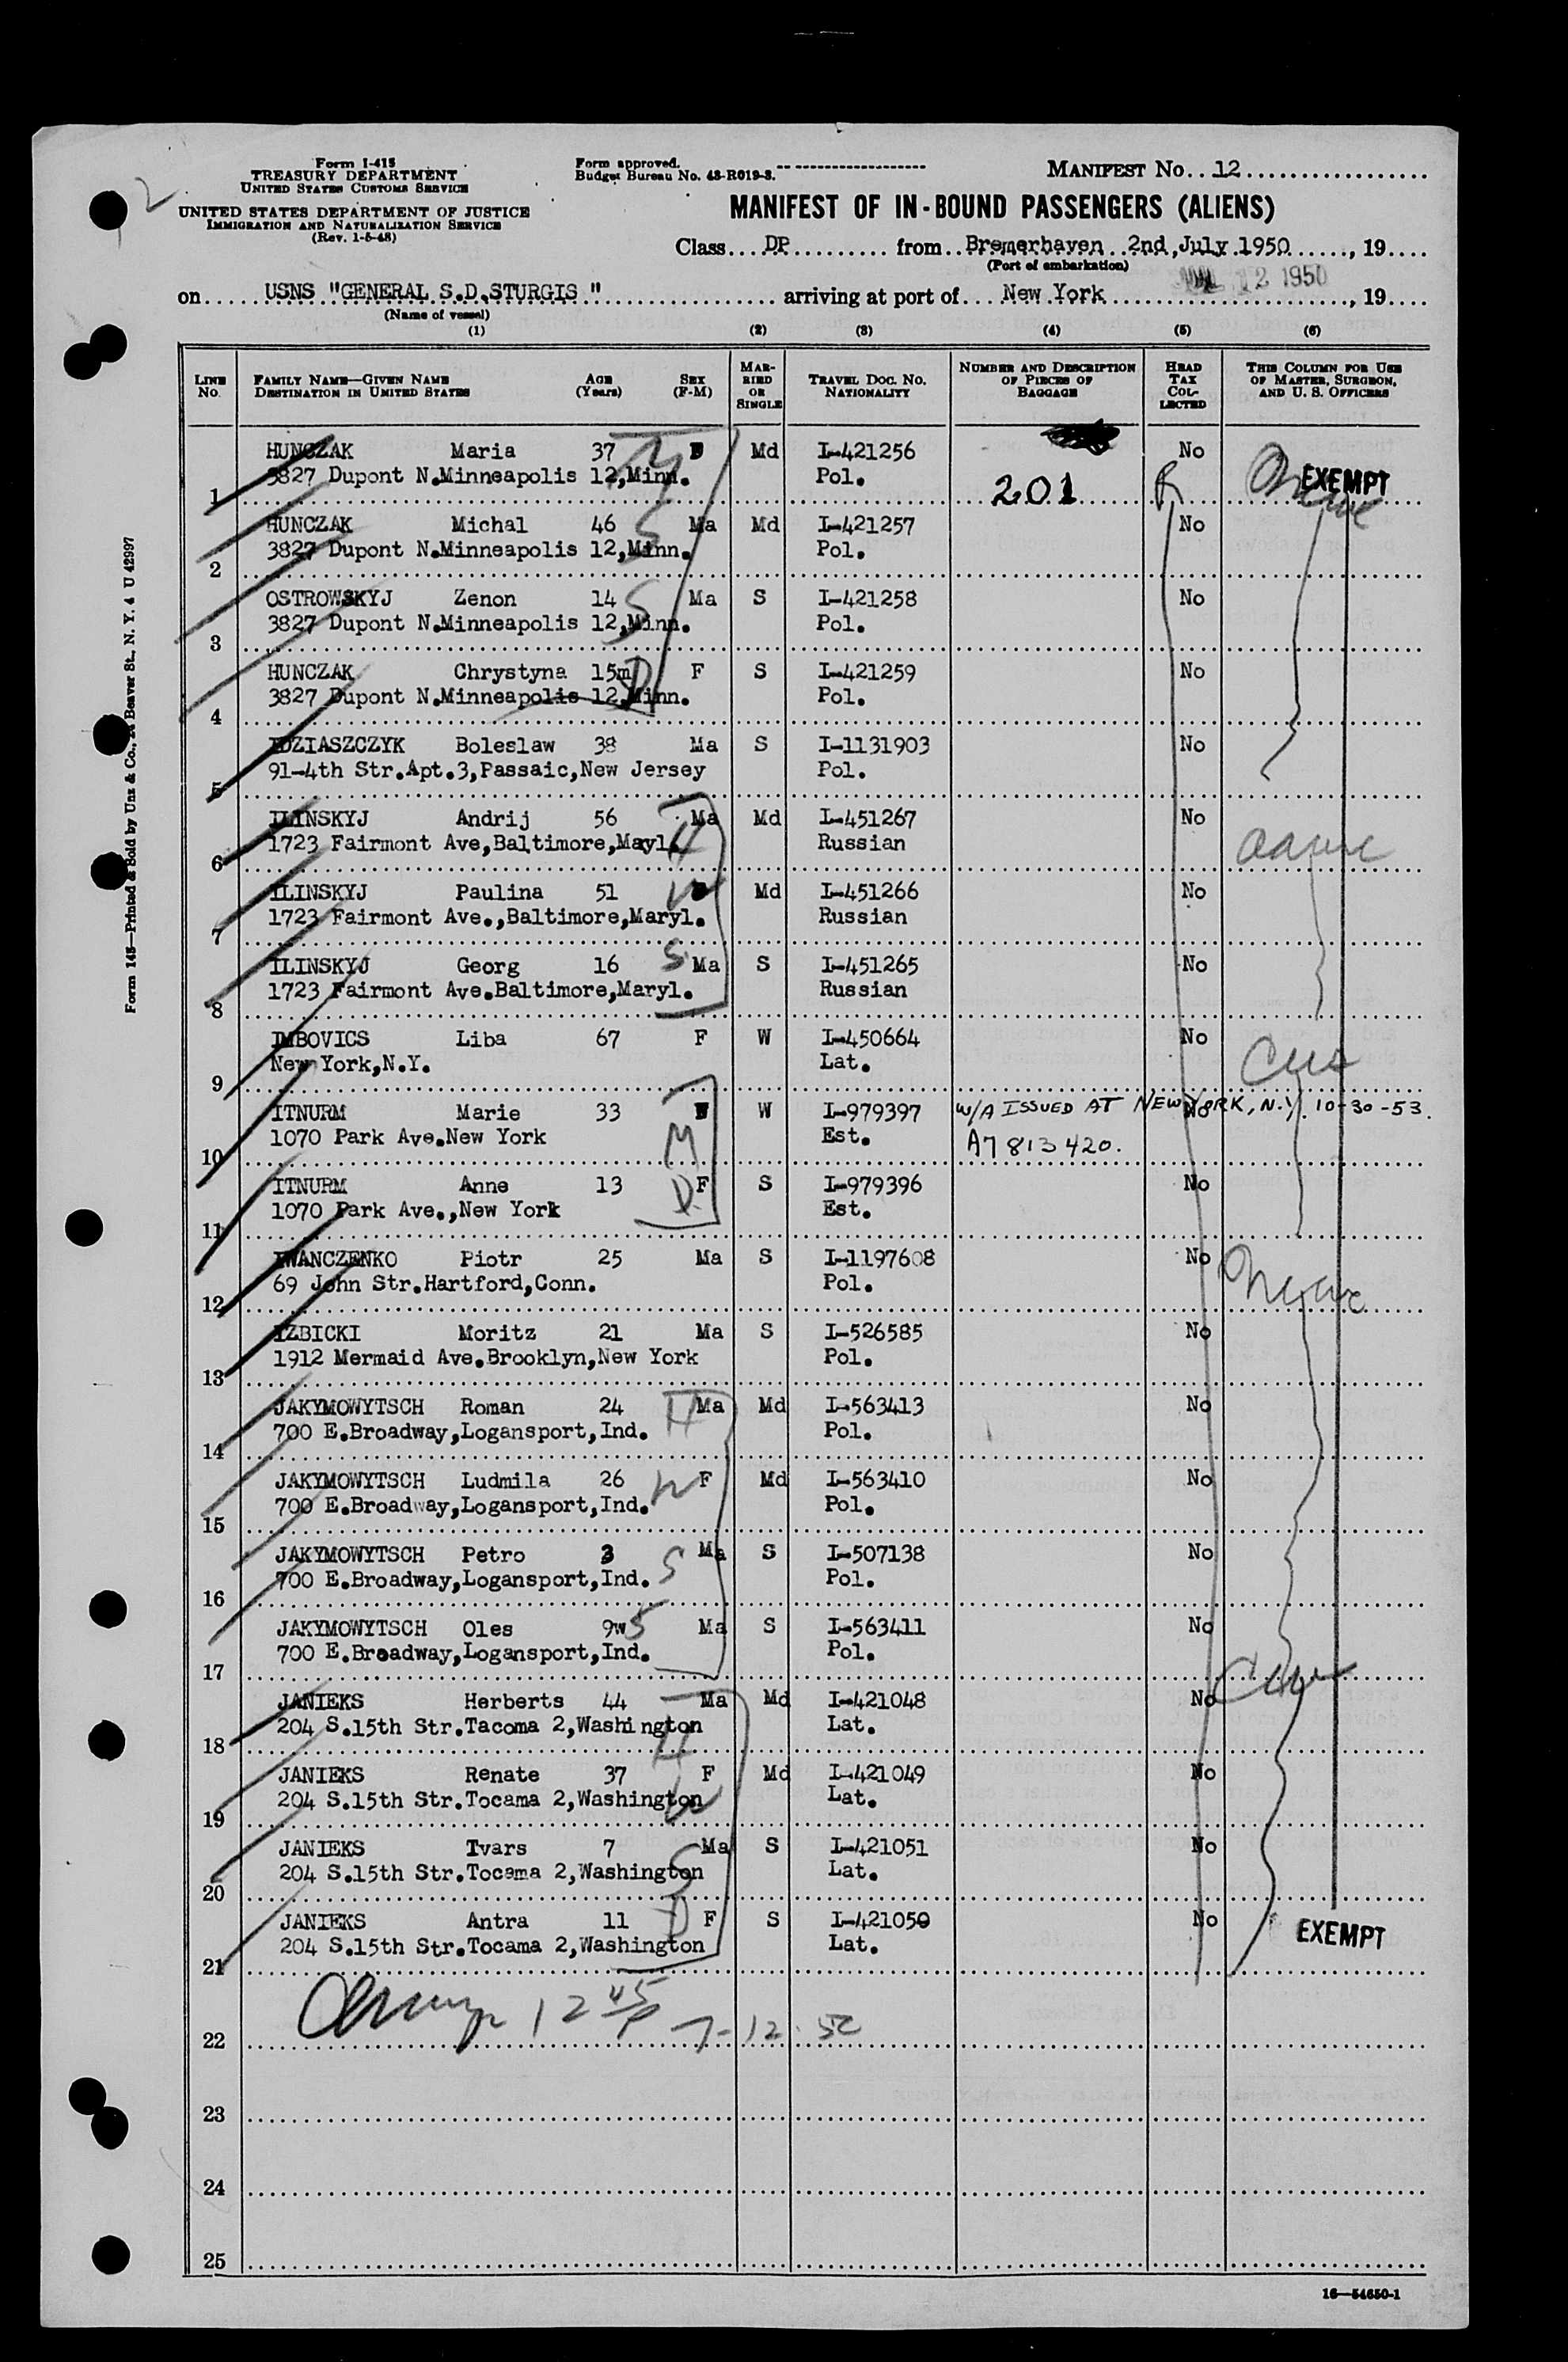 Form I-415
TREASURY DEPARTMENT
UNITED STATES CUSTOMS SERVICE
UNITED STATES DEPARTMENT OF JUSTICE
IMMIGRATION AND NATURALIZATION SERVICE
(Rev. 1-5-48)
Form approved.
Budget Bureau No. 43-R019-3.
MANIFEST NO. 12
MANIFEST OF IN-BOUND PASSENGERS (ALIENS)
Class DP from Bremerhaven 2nd, July 1950, 19
(Port of embarkation)
on USNS "GENERAL S.D.STURGIS " arriving at port of New York JUL 12 1950, 19
(Name of vessel)
(1) (2) (3) (4) (5) (6)
LINE NO. FAMILY NAME—GIVEN NAME DESTINATION IN UNITED STATES AGE (Years) SEX (F-M) MARRIED OR SINGLE TRAVEL DOC. NO. NATIONALITY NUMBER AND DESCRIPTION OF PIECES OF BAGGAGE HEAD TAX COLLECTED THIS COLUMN FOR USE OF MASTER, SURGEON, AND U. S. OFFICERS
HUNCZAK Maria 37 M F Md I-421256 No
1 3827 Dupont N.Minneapolis 12,Minn. Pol. 201 R EXEMPT
HUNCZAK Michal 46 S Ma Md I-421257 No
2 3827 Dupont N.Minneapolis 12,Minn. Pol.
OSTROWSKYJ Zenon 14 S Ma S I-421258 No
3 3827 Dupont N.Minneapolis 12,Minn. Pol.
HUNCZAK Chrystyna 15m D F S I-421259 No
4 3827 Dupont N.Minneapolis 12,Minn. Pol.
IDZIASZCZYK Boleslaw 38 Ma S I-1131903 No
5 91-4th Str.Apt.3,Passaic,New Jersey Pol.
ILINSKYJ Andrij 56 Ma Md I-451267 No
6 1723 Fairmont Ave,Baltimore,Mayl. H Russian
ILINSKYJ Paulina 51 W Md I-451266 No
7 1723 Fairmont Ave.,Baltimore,Maryl. Russian
ILINSKYJ Georg 16 S Ma S I-451265 No
8 1723 Fairmont Ave.Baltimore,Maryl. Russian
IMBOVICS Liba 67 F W I-450664 No
9 New York,N.Y. Lat.
ITNURM Marie 33 F W I-979397 W/A ISSUED AT NEW YORK, N.Y. 10-30-53. No
10 1070 Park Ave.New York M Est. A7 813 420.
ITNURM Anne 13 D F S I-979396 No
11 1070 Park Ave.,New York Est.
IWANCZENKO Piotr 25 Ma S I-1197608 No
12 69 John Str.Hartford,Conn. Pol.
IZBICKI Moritz 21 Ma S I-526585 No
13 1912 Mermaid Ave.Brooklyn,New York Pol.
JAKYMOWYTSCH Roman 24 H Ma Md I-563413 No
14 700 E.Broadway,Logansport,Ind. Pol.
JAKYMOWYTSCH Ludmila 26 W F Md I-563410 No
15 700 E.Broadway,Logansport,Ind. Pol.
JAKYMOWYTSCH Petro 3 Ma S I-507138 No
16 700 E.Broadway,Logansport,Ind. S Pol.
JAKYMOWYTSCH Oles 9w S Ma S I-563411 No
17 700 E.Broadway,Logansport,Ind. Pol.
JANIEKS Herberts 44 Ma Md I-421048 No
18 204 S.15th Str.Tacoma 2,Washington H Lat.
JANIEKS Renate 37 F Md I-421049 No
19 204 S.15th Str.Tocama 2,Washington W Lat.
JANIEKS Ivars 7 Ma S I-421051 No
20 204 S.15th Str.Tocama 2,Washington S Lat.
JANIEKS Antra 11 D F S I-421050 No EXEMPT
21 204 S.15th Str.Tocama 2,Washington Lat.
22 12 45 P 7-12-50
23
24
25
16—54650-1
Form 145—Printed & Sold by Unz & Co., 24 Beaver St., N. Y. 4 U 42997